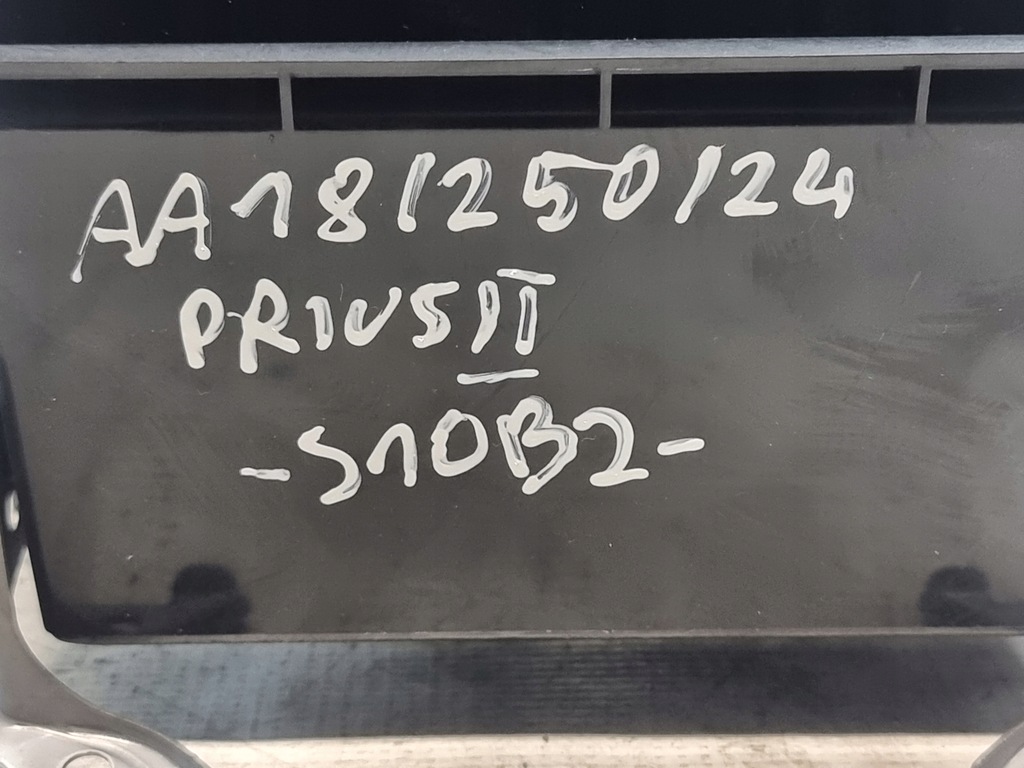 AA18/250/24
PRIUS II
-S10B2-